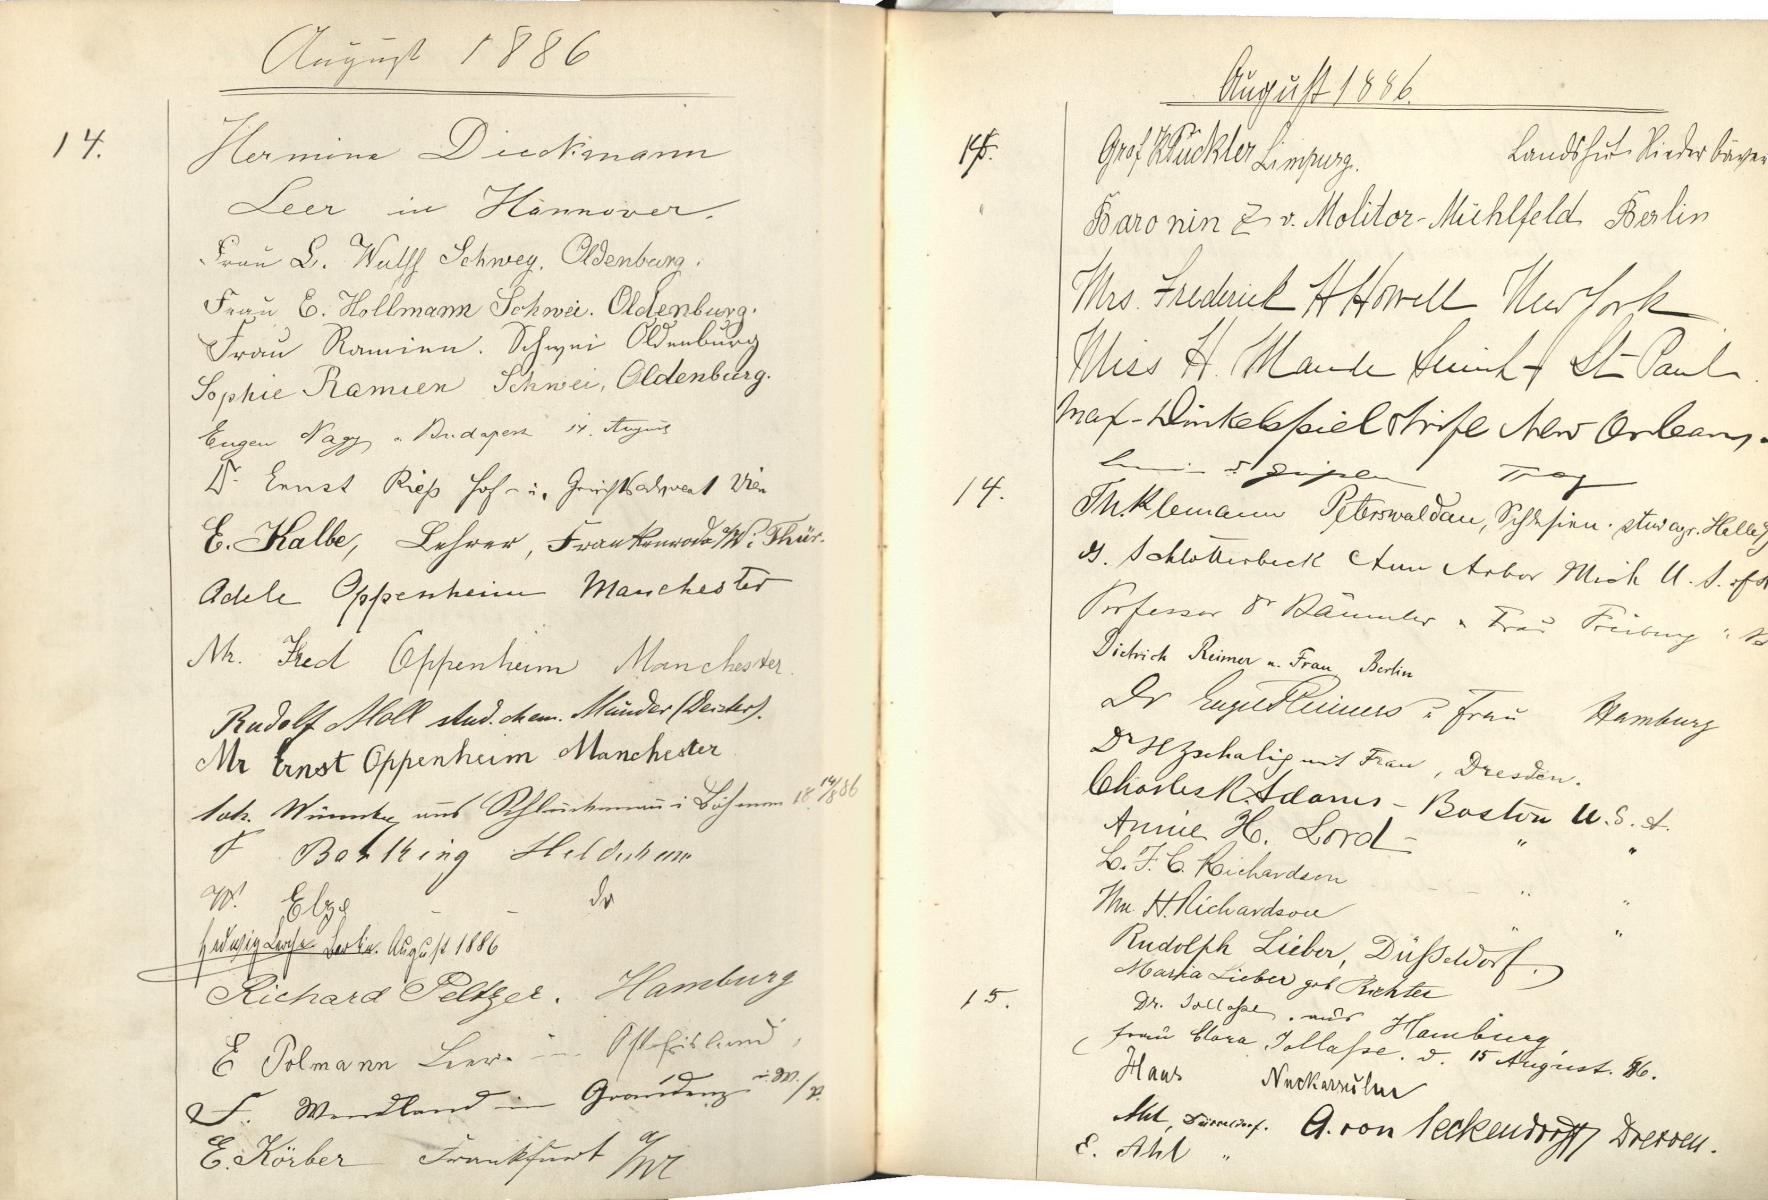 August 1886
14.
Hermine Dieckmann
Leer in Hannover.
Frau L. Wulff Schwey. Oldenburg.
Frau E. Hollmann Schwei. Oldenburg.
Frau Ramien. Schwei Oldenburg
Sophie Ramien Schwei, Oldenburg.
Eugen Nagy Budapest 14. August
Dr. Ernst Rieß Hof- u. Gerichtsadvocat Wien
E. Kalbe, Lehrer, Frankenroda a/W. Thür.
Adele Oppenheim Manchester
Mr. Fred Oppenheim Manchester.
Rudolf Moll stud. chem. Münder (Deister).
Mr Ernst Oppenheim Manchester
Joh. aus i Böhmen 18 14/8 86
F Hildesheim
W. Elze - - do
Hedwig Berlin. August 1886
Richard Peltzer. Hamburg
E Polmann Leer in Ostfriesland,
F. Wendland in Graudenz i. W./P.
E. Körber Frankfurt a/M
August 1886.
14.
Graf Pückler Limpurg. Landshut Nieder Bayer
Baronin Z v. Molitor-Mühlfeld Berlin
Mrs. Frederick H Howell New York
Miss H. Maude St Paul
Max Dinkelspiel & wife New Orleans.
14.
Th. Klemann Peterswaldau, Schlesien. stud agr. Halle
G. Schlotterbeck Ann Arbor Mich U. S. of
Professor Dr Bäumler u Frau Freiburg
Dietrich Reimer u. Frau Berlin
Dr Reimers u Frau Hamburg
Dr H Zschalig mit Frau, Dresden.
Charles R. Adams - Boston U.S.A.
Annie H. Lord - " "
L. F. C. Richardson " "
Wm H. Richardson " "
Rudolph Lieber, Düsseldorf.
Maria Lieber geb Richter
15.
Dr. Jollasse. aus Hamburg
Frau Clara Jollasse. d. 15 August. 86.
Hans Neckarsulm
Ahl, Düsseldorf. A. von Seckendorff Dresden.
E. Ahl "